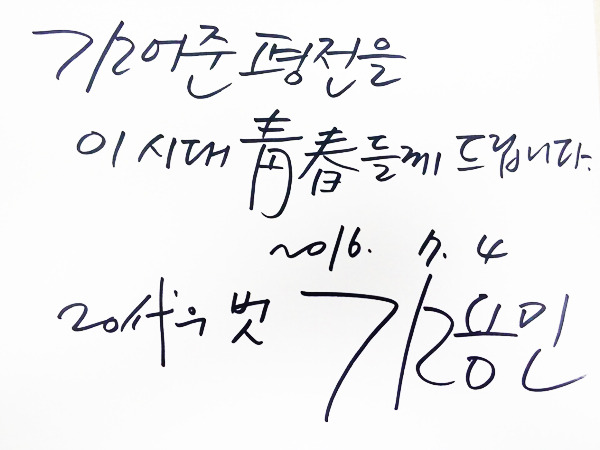 김어준 평전을
이 시대 靑春들께 드립니다.
2016. 7. 4
20年의 벗 김용민